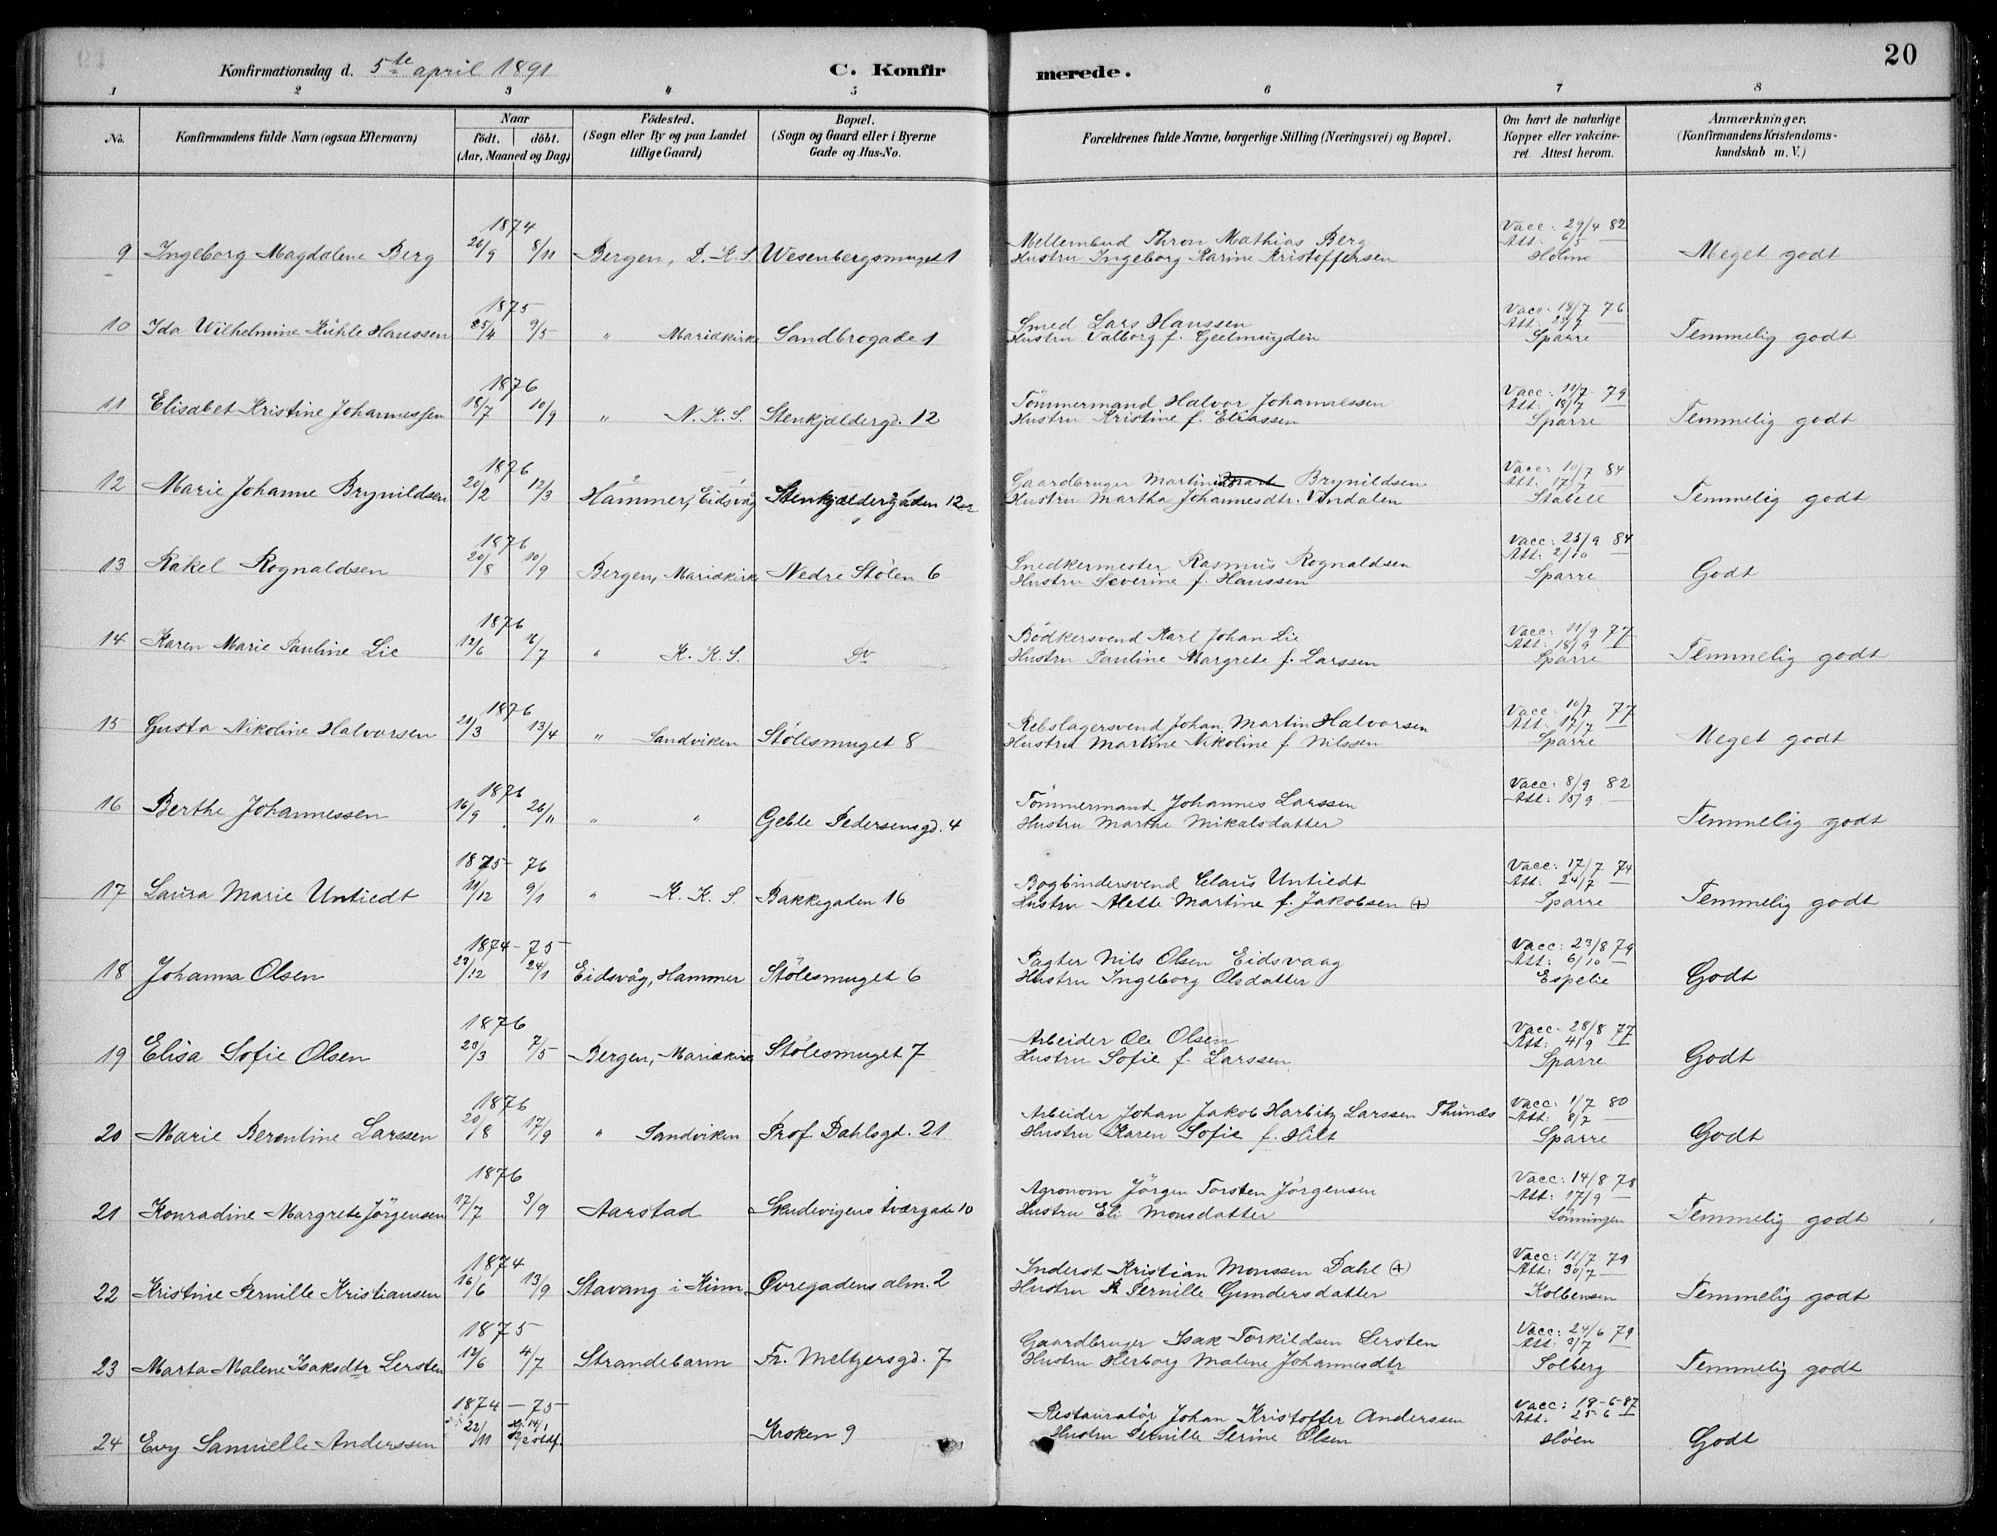 20
Konfirmationsdag d. 5te april 1891 C. Konfirmerede.
1 2 3 4 5 6 7 8
No. Konfirmandens fulde Navn (ogsaa Efternavn) Naar födt. döbt. (Aar, Maaned og Dag) Födested. (Sogn eller By og paa Landet tillige Gaard) Bopæl. (Sogn og Gaard eller i Byerne Gade og Hus-No. Forældrenes fulde Navne, borgerlige Stilling (Næringsvei) og Bopæl. Om havt de naturlige Kopper eller vakcineret. Attest herom. Anmærkninger. (Konfirmandens Kristendomskundskab m. V.)
1874 Mellembud Thron Mathias Berg Vacc: 29/4 82
9 Ingeborg Magdalene Berg 26/9 8/11 Bergen, D.K.S. Wesenbergsmuget 1 Hustru Ingeborg Karine Kristoffersen Att: 6/5 — Holme Meget godt
1875 Smed Lars Hanssen Vacc: 18/7 76
10 Ida Wilhelmine Kühle Hanssen 25/4 9/5 " Mariakirke Sandbrogade 1 Hustru Valborg f. Geelmuyden Att: 25/7 — Sparre Temmelig godt
1876 Tömmermand Halvor Johannessen Vacc: 11/7 79
11 Elisabet Kristine Johannessen 18/7 10/9 " N.K.S. Stenkjeldergd. 12 Hustru Kristine f. Eliassen Att: 18/7 — Sparre Temmelig godt
1876 Gaardbruger Martin Brynildsen Vacc: 10/7 84
12 Marie Johanne Brynildsen 20/2 12/3 Hammer, Eidsvåg Stenkjeldergaden 12 Hustru Martha Johannesdtr. Vindalen Att: 17/7 — Stabell Temmelig godt
1876 Snedkermester Rasmus Rognaldsen Vacc: 25/9 84
13 Rakel Rognaldsen 20/8 10/9 Bergen, Mariakirke Nedre Stölen 6 Hustru Severine f. Hanssen Att: 2/10 — Sparre Godt
1876 Bödkersvend Karl Johan Lie Vacc: 11/9 77
14 Karen Marie Pauline Lie 12/6 16/7 " K.K.S. Do Hustru Pauline Margrete f. Larssen Att: 18/9 — Sparre Temmelig godt
1876 Rebslagersvend Johan Martin Halvorsen Vacc: 10/7 77
15 Gusta Nikoline Halvorsen 21/3 13/4 " Sandviken Stölesmuget 8 Hustru Martine Nikoline f. Nilssen Att: 17/7 — Sparre Meget godt
1876 Tömmermand Johannes Larssen Vacc: 8/9 82
16 Berthe Johannessen 16/9 26/11 " " Geble Pedersensgd. 4 Hustru Marthe Mikalsdatter Att: 15/9 — Temmelig godt
1875- 76 Bogbindersvend Claus Untiedt Vacc: 17/7 74
17 Laura Marie Untiedt 11/12 9/1 " K.K.S. Bakkegaden 16 Hustru Alette Martine f. Jakobsen (+) Att: 24/7 — Sparre Temmelig godt
1874 - 75 Pagter Nils Olsen Eidsvaag Vacc: 23/8 79
18 Johanna Olsen 23/12 24/1 Eidsvåg, Hammer Stölesmuget 6 Hustru Ingeborg Olsdatter Att: 6/10 — Espelie Godt
1876 Arbeider Ole Olsen Vacc: 28/8 77
19 Elisa Sofie Olsen 23/3 7/5 Bergen, Mariakirke Stölesmuget 7 Hustru Sofie f. Larssen Att: 4/9 — Sparre Godt
1876 Arbeider Johan Jakob Harbitz Larssen Thunæs Vacc: 1/7 80
20 Marie Berentine Larssen 20/8 17/9 " Sandviken Prof. Dahlsgd. 21 Hustru Karen Sofie f. Hilt Att: 8/7 — Sparre Godt
1876 Agronom Jörgen Torsten Jörgensen Vacc: 14/8 78
21 Konradine Margrete Jörgensen 17/7 3/9 Aarstad Skudevigens tværgade 10 Hustru Eli Monsdatter Att: 17/9 — Lönningen Temmelig godt
1874 Inderst Kristian Monssen Dahl (+) Vacc: 11/7 79
22 Kristine Pernille Kristiansen 16/6 13/9 Stavang i Kinn Övregadens alm. 2 Hustru Pernille Gundersdatter Att: 30/7 — Kolbensen Temmelig godt
1875 Gaardbruger Isak Torkildsen Lersten Vacc: 24/6 79
23 Marta Malene Isaksdtr Lersten 12/6 4/7 Strandebarm Fr. Meltzersgd. 7 Hustru Herborg Malene Johannesdtr Att: 2/7 — Solberg Temmelig godt
1874 - 75 Restauratör Johan Kristoffer Anderssen Vacc: 18-6-87
24 Evy Samuelle Anderssen 22/11 14/1 Kroken 9 Hustru Pernille Serine Olsen Att: 25-6 — Höen Godt